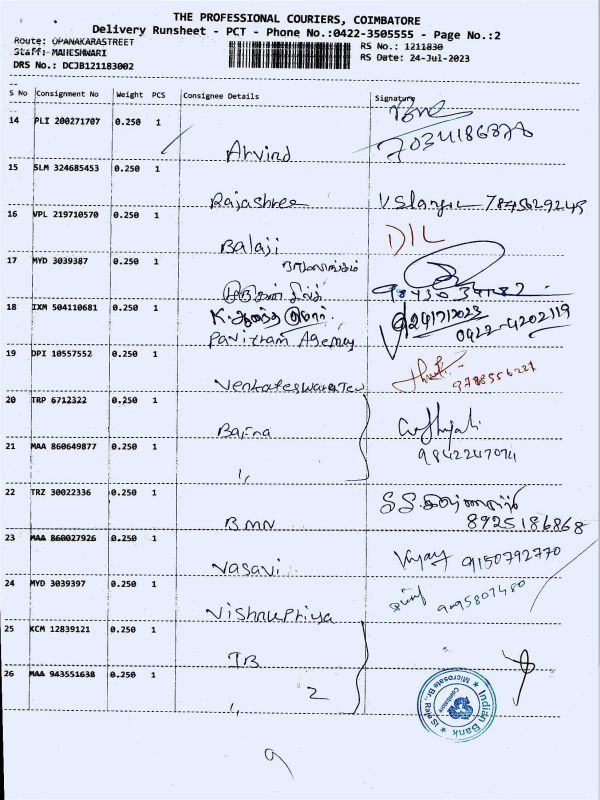 THE PROFESSIONAL COURIERS, COIMBATORE
Delivery Runsheet - PCT - Phone No.:0422-3505555 - Page No.:2
Route: OPANAKARASTREET
Staff: MAHESHWARI
DRS No.: DCJB121183002
1211830
RS No.: 1211830
RS Date: 24-Jul-2023
S No Consignment No Weight PCS Consignee Details Signature
14 PLI 200271707 0.250 1 Arvind 7034186878
15 SLM 324685453 0.250 1 Rajashree 7845629245
16 VPL 219710570 0.250 1 Balaji D/L
17 MYD 3039387 0.250 1
18 IXM 504110681 0.250 1 K. ஆனந்த குமார் 9241712023
Pavitram Agency 0422-4202119
19 DPI 10557552 0.250 1 Venkateswara Tex 9788556221
20 TRP 6712322 0.250 1 Bafna
21 MAA 860649877 0.250 1 " 9842247074
22 TRZ 30022336 0.250 1 BMN 8925186868
23 MAA 860027926 0.250 1 Vasavi Vijay 9150792770
24 MYD 3039397 0.250 1 Vishnupriya 9095807480
25 KCM 12839121 0.250 1 IB
26 MAA 943551638 0.250 1 " 2
Indian Bank
Microsate Br., Raja St.
Coimbatore
9